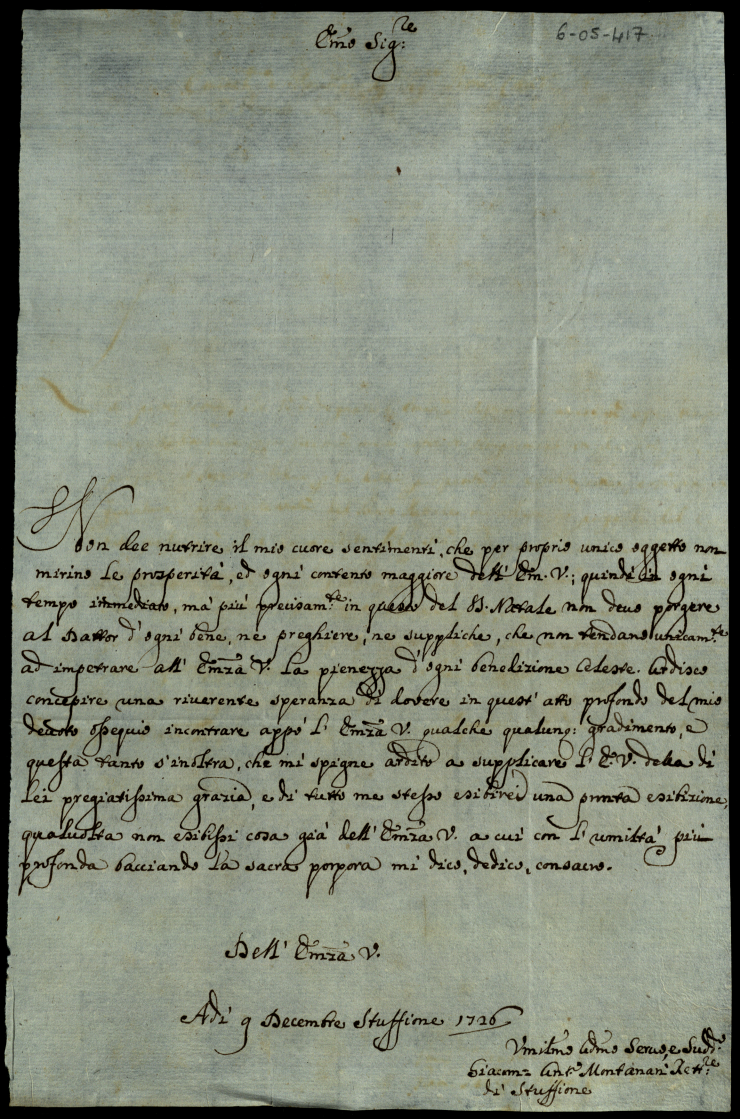 Em̃o Sig:re
6-05-417
Non dee nutrire il mio cuore sentimenti, che per proprio unico oggetto non
mirino le prosperità, ed ogni contento maggiore dell' Em. V.; quindi in ogni
tempo immediato, mà più precisam:te in questo del SS. Natale non devo porgere
al Dattor d'ogni bene, ne preghiere, ne suppliche, che non tendano unicam:te
ad impetrare all' Em̃za V. la pienezza d'ogni benedizione Celeste. Ardisco
concepire una riverente speranza di dovere in quest' atto profondo del mio
devoto ossequio incontrare appò l' Em̃za V. qualche qualunq: gradimento, e
questa tanto s'inoltra, che mi spigne ardito a supplicare l' E. V. della di
Lei pregiatissima grazia, e di tutto me stesso esibirei una pronta esibizione,
qualvolta non esibissi cosa già dell' Em̃za V. a cui con l' umiltà più
profonda bacciando la sacra porpora mi dico, dedico, consacro.
Dell' Em̃za V.
Adi 9 Decembre Stuffione 1726
Vmilm̃o Udm̃o Servo, e Sudd:o
Giacomo Ant:o Montanari Rett:re
di Stuffione